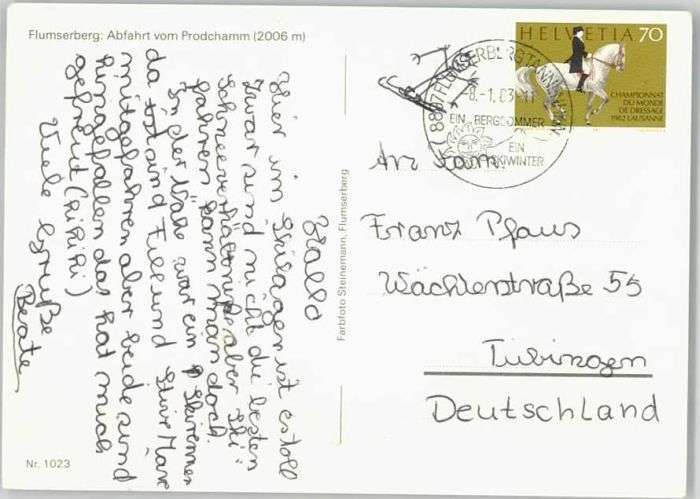 Flumserberg: Abfahrt vom Prodchamm (2006 m)
Hallo
Hier im Skilager ist es toll
Zwar sind nicht die besten
Schneeverhältnisse aber Ski-
fahren kann man doch.
In der Nähe war ein Skirennen
da sind Phil und Steve Mare
mitgefahren aber beide sind
hingefallen das hat mich
gefreut (hihihi)
Viele Grüße
Beate
Nr. 1023
Farbfoto Steinemann, Flumserberg
HELVETIA 70
CHAMPIONNAT
DU MONDE
DE DRESSAGE
1982 LAUSANNE
FLUMSERBERG TANNENBODEN
-8.-1.83-11
EIN BERGSOMMER
EIN
SKIWINTER
An Fam.
Franz Pfaus
Wächterstraße 55
Tübingen
Deutschland